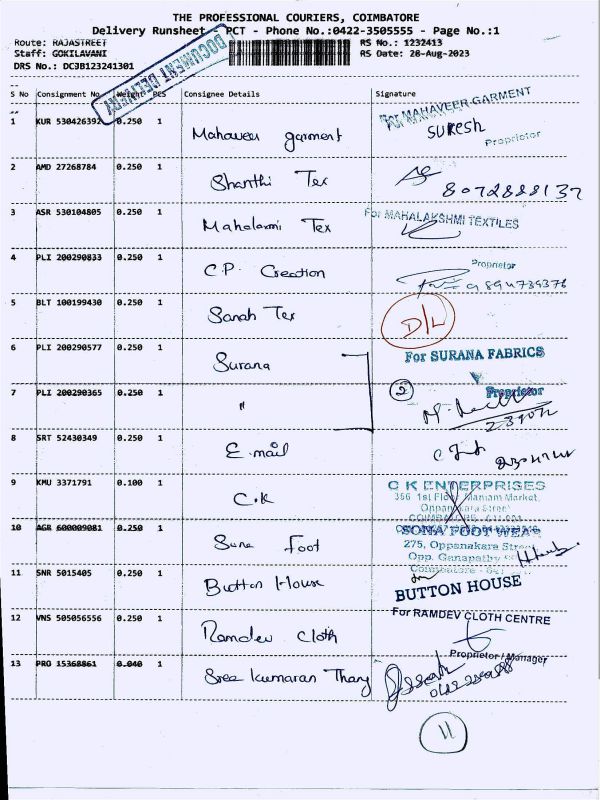 THE PROFESSIONAL COURIERS, COIMBATORE
Delivery Runsheet - PCT - Phone No.:0422-3505555 - Page No.:1
Route: RAJASTREET RS No.: 1232413
Staff: GOKILAVANI RS Date: 28-Aug-2023
DRS No.: DC3B123241301
DOCUMENT DELIVERY
S No Consignment No Weight PCS Consignee Details Signature
1 KUR 530426392 0.250 1 Mahaveer garment For MAHAVEER GARMENT
Suresh
Proprietor
2 AMD 27268784 0.250 1 Shanthi Tex 8072888137
3 ASR 530104805 0.250 1 Mahalaxmi Tex For MAHALAKSHMI TEXTILES
4 PLI 200290833 0.250 1 C.P. Creation Proprietor
9894739376
5 BLT 100199430 0.250 1 Sanah Tex D/L
6 PLI 200290577 0.250 1 Surana For SURANA FABRICS
7 PLI 200290365 0.250 1 " 2 Proprietor
8 SRT 52430349 0.250 1 E.mail
9 KMU 3371791 0.100 1 C.K C K ENTERPRISES
366 1st Floor Maniam Market,
Oppanakara Street
10 AGR 600009081 0.250 1 Sona Foot SONA FOOT WEAR
275, Oppanakara Street
Opp. Ganapathy
Coimbatore - 641
11 SNR 5015405 0.250 1 Button House BUTTON HOUSE
12 VNS 505056556 0.250 1 Ramdev Cloth For RAMDEV CLOTH CENTRE
Proprietor / Manager
13 PRO 15368861 0.040 1 Sree kumaran Thang
11